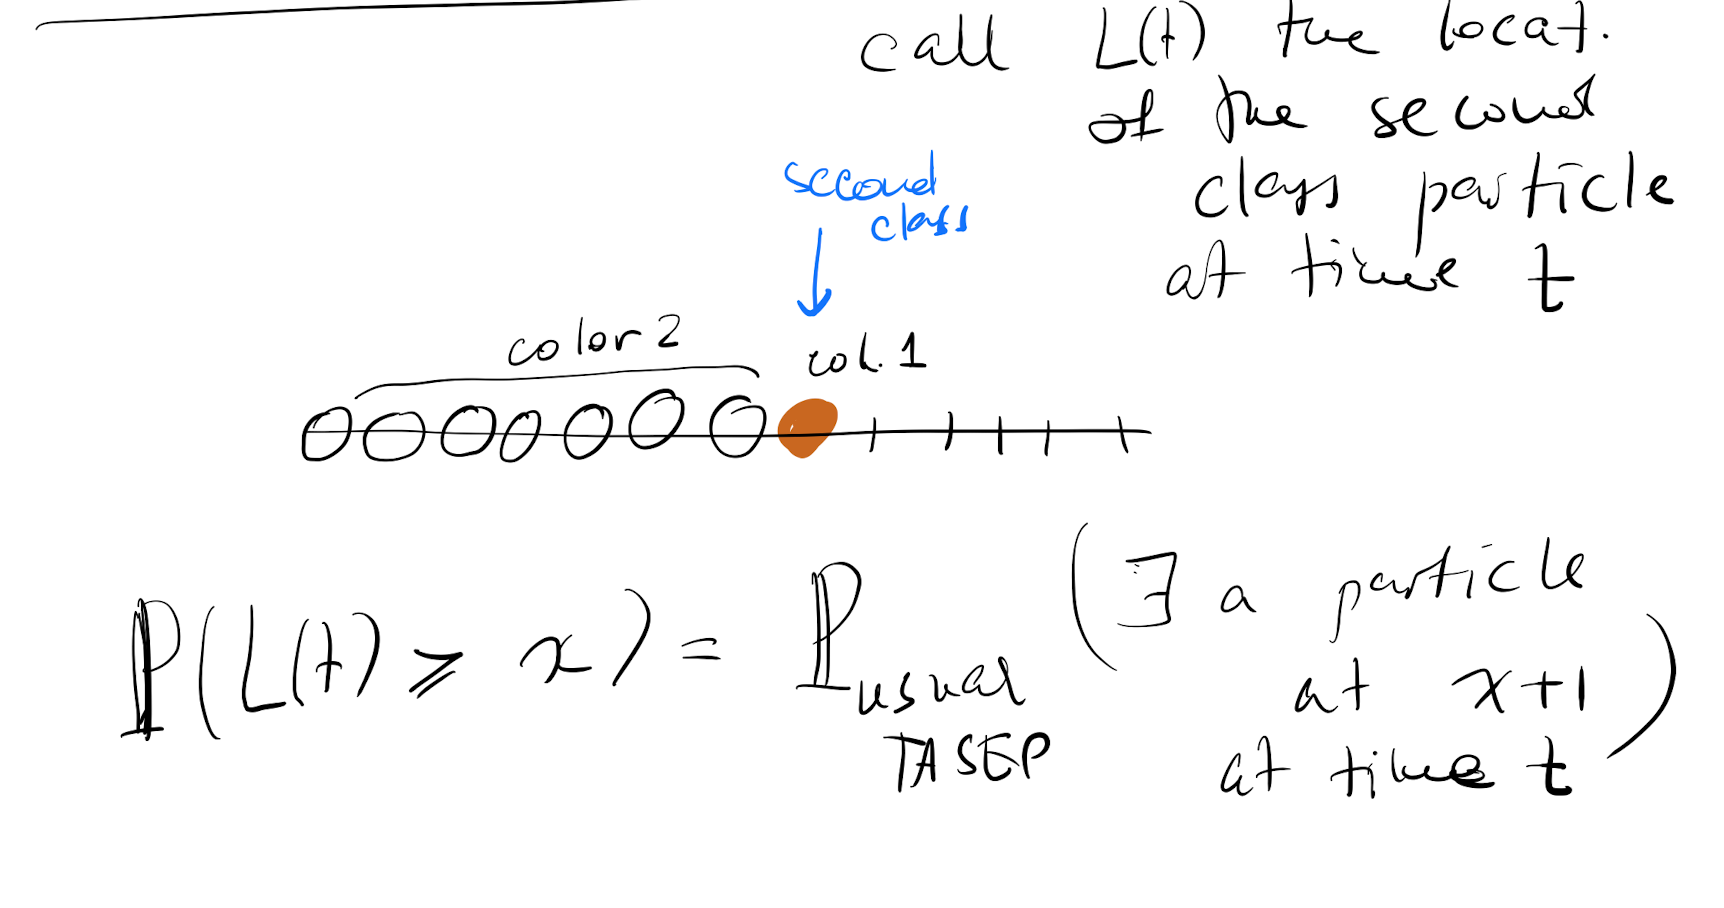 call L(t) the locat.
of the second
class particle
at time t
second
class
color 2
col. 1
P(L(t) ⩾ x) = P usual TASEP (∃ a particle
at x+1
at time t)